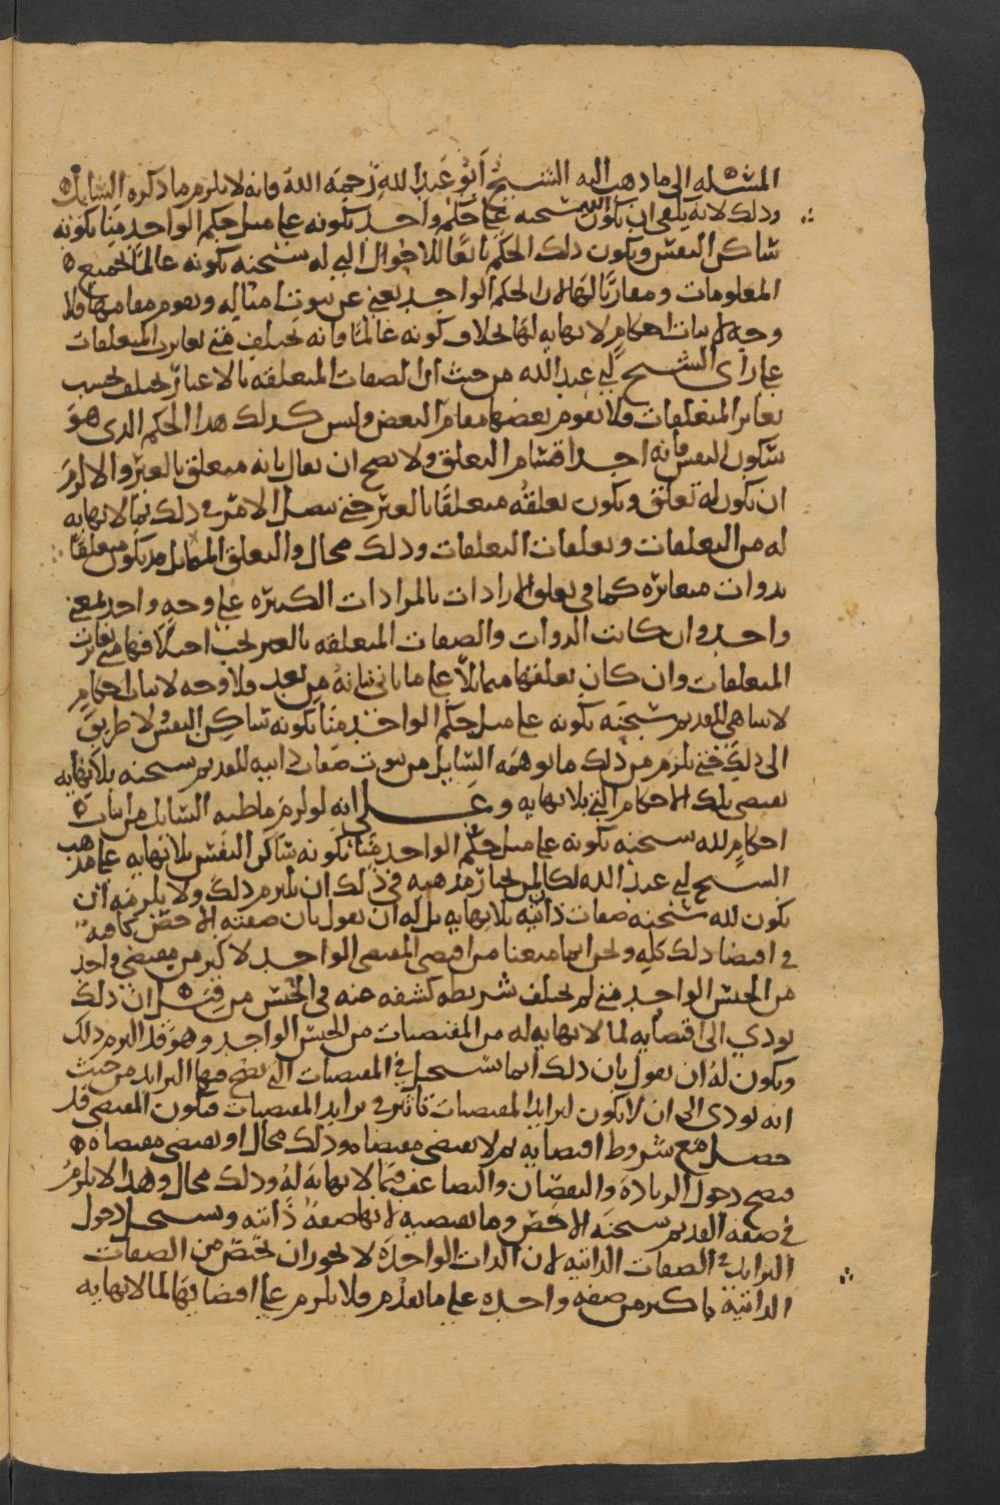 المسئله الى ما ذهب اليه الشيخ أبو عبد الله رحمه الله فانه لا يلزم ما ذكره السايل
وذلك لانه يكفي ان يكون الله سبحنه على حكم واحد بكونه على مثل حكم الواحد منا بكونه
ساكن النفس ويكون ذلك الحكم تابعا للاحوال التي له سبحنه بكونه عالما بجميع
المعلومات ومقارنا لها لان الحكم الواحد يغني عن ثبوت امثاله ويقوم مقامها فلا
وجه لاثبات احكام لا نهايه لها بخلاف كونه عالما فانه يختلف متى تغايرت المتعلقات
على راي الشيخ ابي عبد الله من حيث ان الصفات المتعلقه بالاغيار تختلف بحسب
تغاير المتعلقات ولا يقوم بعضها مقام البعض وليس كذلك هذا الحكم الذي هو
سكون النفس فانه احد اقسام التعلق ولا يصح ان يقال بانه متعلق بالغير والا لزم
ان يكون له تعلق ويكون تعلقه متعلقا بالغير حتى يتصل الامر في ذلك بما لا نهايه
له من التعلقات وتعلقات التعلقات وذلك محال والتعلق المتماثل قد يكون متعلقا
بذوات متغايره كما في تعلق الارادات بالمرادات الكثيره على وجه واحد لمعنى
واحد وان كانت الذوات والصفات المتعلقه بالغير يجب اختلافها متى تغايرت
المتعلقات وان كان تعلقها متماثلا على ما ياتي بيانه من بعد فلا وجه لاثبات احكام
لا تتناهى للقديم سبحنه بكونه على مثل حكم الواحد منا بكونه ساكن النفس ولا طريق
الى ذلك حتى يلزم من ذلك ما توهمه السايل من ثبوت صفات ذاتيه للقديم سبحنه بلا نهايه
تقتضي تلك الاحكام التي بلا نهايه وعلى انه لو لزم ما ظنه السايل من اثبات
احكام لله سبحنه بكونه على مثل حكم الواحد منا بكونه ساكن النفس بلا نهايه على مذهب
الشيخ ابي عبد الله لكان لمن يختار مذهبه في ذلك ان يلتزم ذلك ولا يلزمه ان
يكون لله سبحنه صفات ذاتيه بلا نهايه بل له ان يقول بان صفته الاخص كافيه
في اقتضا ذلك كله ونحن انما منعنا من اقتضى المقتضى الواحد لاكثر من مقتضى واحد
من الجنس الواحد متى لم يختلف شريطه كشفه عنه في الجنس من قبل ان ذلك
يودي الى اقتضايه لما لا نهايه له من المقتضيات من الجنس الواحد وهو قد التزم ذلك
ويكون له ان يقول بان ذلك انما يستحيل في المقتضيات التي يصح فيها التزايد من حيث
انه يودي الى ان لا يكون لتزايد المقتضيات تاثير في تزايد المقتضيات فيكون المقتضي قد
حصل مع شروط اقتضايه ثم لا يقتضي مقتضاه وذلك محال او يقتضي مقتضاه
فيصح دخول الزياده والنقصان والتضاعف فيما لا نهايه له وذلك محال وهذا لا يلزم
في صفه القديم سبحنه الاخص وما تقتضيه لانها صفه ذاتيه ويستحيل دخول
التزايد في الصفات الذاتيه لان الذات الواحده لا يجوز ان تختص من الصفات
الذاتيه باكثر من صفه واحده على ما تقدم فلا يلزم على اقتضايها لما لا نهايه